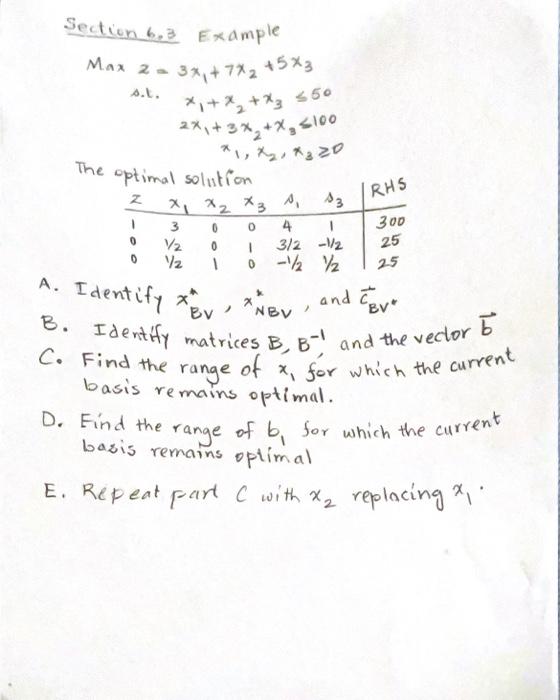 Section 6.3 Example
Max z = 3x₁ + 7x₂ + 5x₃
s.t. x₁ + x₂ + x₃ ≤ 50
2x₁ + 3x₂ + x₃ ≤ 100
x₁, x₂, x₃ ≥ 0
The optimal solution
z x₁ x₂ x₃ s₁ s₃ RHS
1 3 0 0 4 1 300
0 1/2 0 1 3/2 -1/2 25
0 1/2 1 0 -1/2 1/2 25
A. Identify x*BV, x*NBV, and c⃗BV.
B. Identify matrices B, B⁻¹, and the vector b⃗
C. Find the range of x₁ for which the current
basis remains optimal.
D. Find the range of b₁ for which the current
basis remains optimal
E. Repeat part C with x₂ replacing x₁.